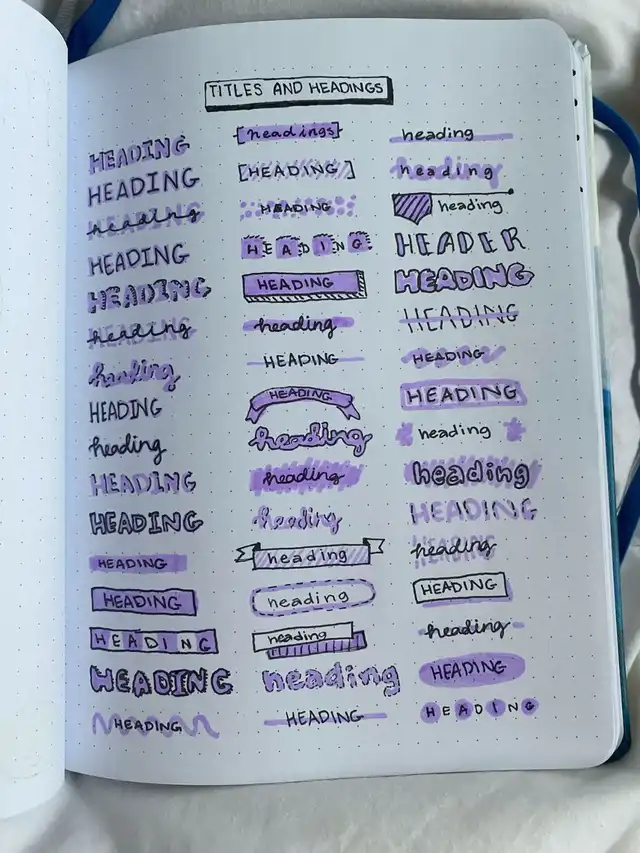 TITLES AND HEADINGS
HEADING
HEADING
HEADING
heading
HEADING
HEADING
HEADING
heading
heading
HEADING
heading
HEADING
HEADING
HEADING
HEADING
HEADING
HEADING
HEADING
[headings]
[HEADING]
HEADING
HEADING
HEADING
heading
HEADING
HEADING
heading
heading
heading
heading
heading
heading
heading
HEADING
heading
heading
heading
HEADER
HEADING
HEADING
HEADING
HEADING
heading
heading
HEADING
HEADING
heading
HEADING
heading
HEADING
HEADING